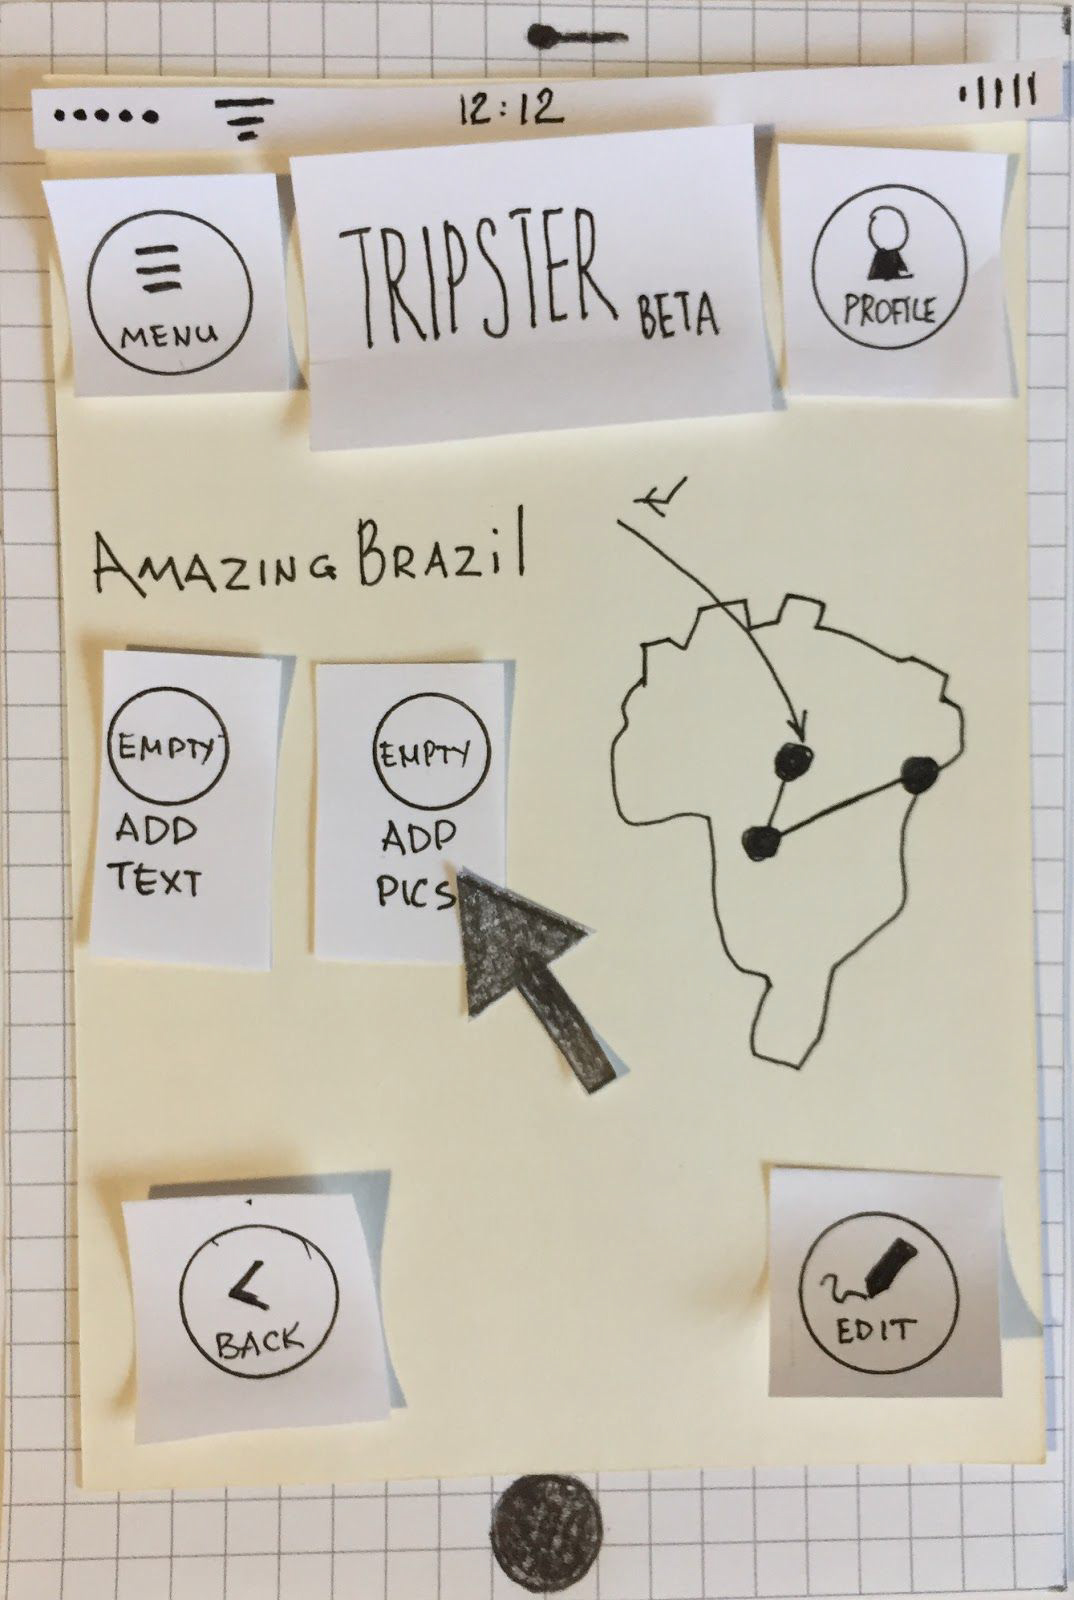 12:12
MENU
TRIPSTER BETA
PROFILE
AMAZING BRAZil
EMPTY
ADD
TEXT
EMPTY
ADD
PICS
BACK
EDIT